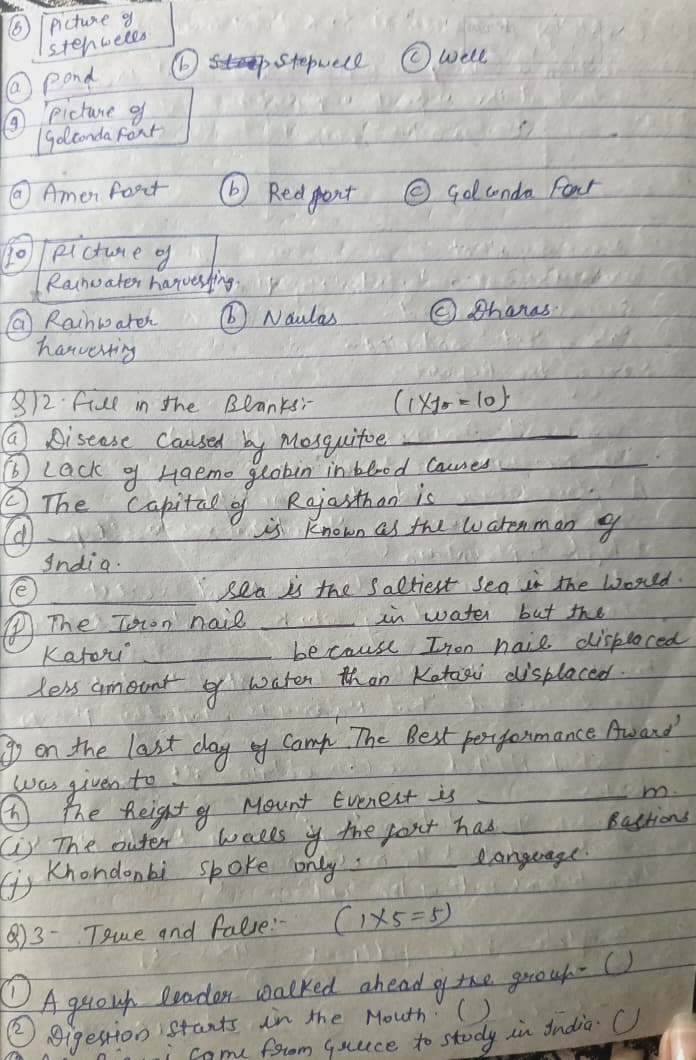 ⑧ Picture of
stepwells.
ⓐ Pond ⓑ Stepwell ⓒ Well
⑨ Picture of
Golconda Fort
ⓐ Amer Fort ⓑ Red fort ⓒ Golconda Fort
⑩ Picture of
Rainwater harvesting.
ⓐ Rainwater ⓑ Naulas ⓒ Dharas.
harvesting
Q)2. Fill in the Blanks:- (1X10=10)
ⓐ Disease Caused by Mosquitoe ________
ⓑ Lack of Haemo globin in blood Causes ________.
ⓒ The Capital of Rajasthan is ________.
ⓓ ________ is known as the Water man of
India.
ⓔ ________ sea is the Saltiest Sea in the World.
ⓕ The Iron nail ________ in water but the
Katori ________ because Iron nail displaced
less amount of water than Katori displaced.
ⓖ on the last day of Camp 'The Best performance Award'
was given to ________
ⓗ The height of Mount Everest is ________ m.
(i) The outer walls of the fort has ________ Bastions
(j) Khondonbi spoke only ________ language.
Q)3- True and False:- (1X5=5)
① A group leader walked ahead of the group- ()
② Digestion starts in the Mouth. ()
came from Greece to study in India. ()